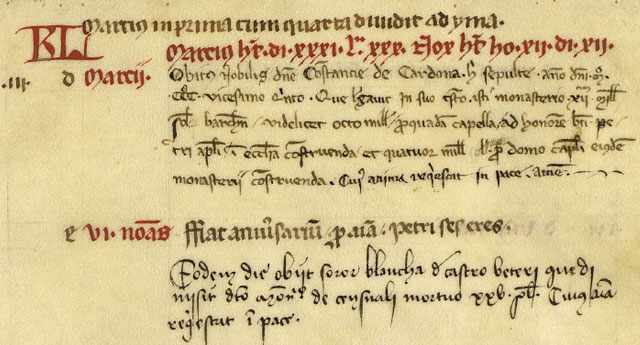 Marcius in prima cum quarta diuidit ad yma.
KL Marcius ht. di. xxxi. L. xxx. Nox ht. ho. xii. di. xii.
.iii. d Marcii. Obitus Nobilis dne Costancie de Cardona. h sepulte. año dni mº
cccº. vicesimo qⁱnto. Que legauit in suo testo. isti monasterio xii. mill
sol. barchn. videlicet octo mill. p quadam capella. ad honorem bti pe-
tri apli. i ecclia construenda et quatuor mill sol. p domo capli eiusdem
monasterii construenda. Cuiˢ anima reqⁱescat in pace. amen.
e vi. noas ffiat aniu̇sariu̅ p aīa. petri ses eres.
Eodem die obiit soror blancha d castro veteri que di
misit dto mon. de censuali mortuo xxv. sol. Cuius aīa
reqⁱescat ī pace.